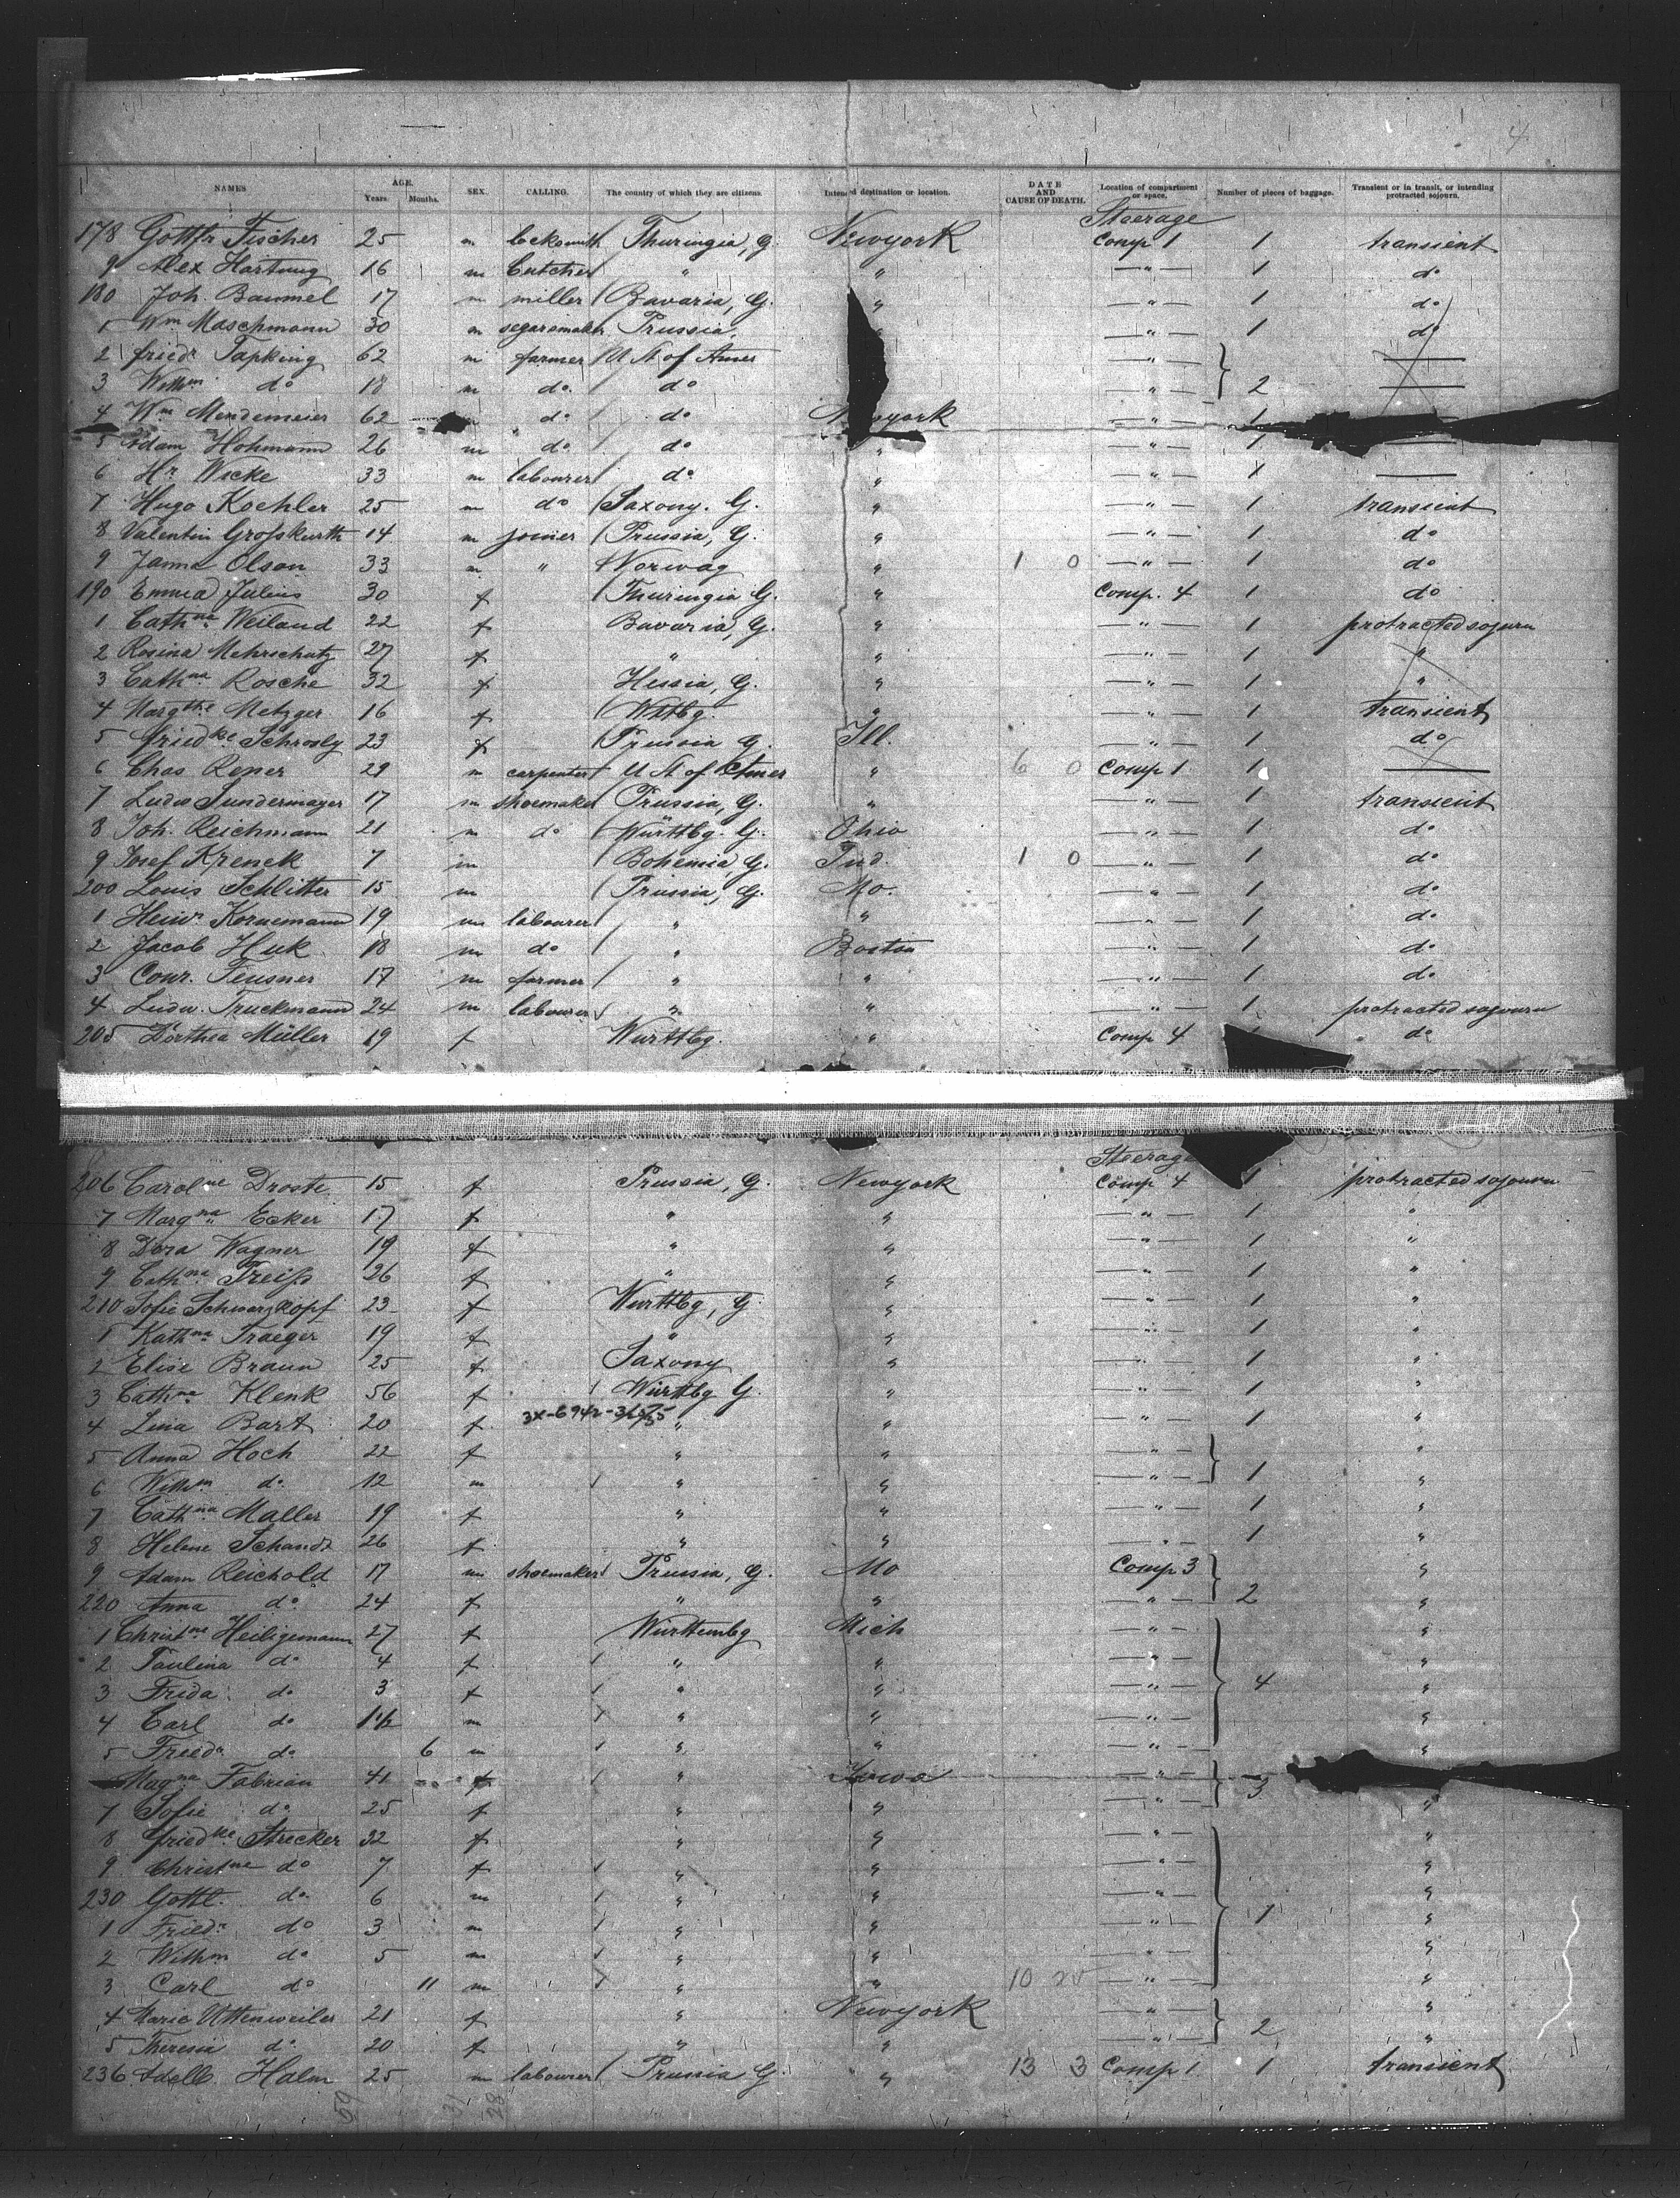 4
NAMES AGE. Years. Months. SEX. CALLING. The country of which they are citizens. Intended destination or location. DATE AND CAUSE OF DEATH. Location of compartment or space. Number of pieces of baggage. Transient or in transit, or intending protracted sojourn.
Steerage
178 Gottfr Fischer 25 m locksmith Thuringia, G. Newyork Comp 1 1 transient
9 Alex Hartung 16 m butcher " " — " — 1 do
180 Joh. Baumel 17 m miller Bavaria, G. " — " — 1 do
1 Wm Maschmann 30 m segarsmaker Prussia, — " — 1 do
2 Friedr Tapking 62 m farmer U St of Amer — " —
3 Wilhm do 18 m do. do — " — 2
4 Wm Mendemeier 62 do do Newyork — " — 1
5 Adam Hohmann 26 m do. do " — " — 1
6 Hr Wicke 33 m labourer do " — " — 1
7 Hugo Koehler 25 m do Saxony. G. " — " — 1 transient
8 Valentin Grofskurth 14 m joiner Prussia, G. " — " — 1 do
9 Janna Olson 33 m " Norway " 1 0 — " — 1 do
190 Emma Julius 30 f Thuringia G. " Comp. 4 1 do
1 Cathna Weiland 22 f Bavaria, G. " — " — 1 protracted sojourn
2 Rosina Mehrschatz 27 f " " — " — 1 "
3 Cathna Rosche 32 f Hessia, G. " — " — 1 "
4 Margthe Metzger 16 f Wttbg. " — " — 1 transient
5 Friedke 23 f Prussia G. Ill. — " — 1 do
6 Chas Rener 29 m carpenter U St of Amer " 6 0 Comp 1 1
7 Ludw Sundermayer 17 m shoemaker Prussia, G. " — " — 1 transient
8 Joh. Reichmann 21 m do Württbg. G. Ohio — " — 1 do
9 Josef Krenek 7 m Bohemia, G. Ind. 1 0 — " — 1 do
200 Louis Schlitter 15 m Prussia, G. Mo. — " — 1 do
1 Heinr Kornemann 19 m labourer " " — " — 1 do
2 Jacob Huk 18 m do " Boston — " — 1 do
3 Conr. Teusner 17 m farmer " " — " — 1 do
4 Ludw. Truckmann 24 m labourer " " — " — 1 protracted sojourn
205 Dorthea Müller 19 f Wurttbg. " Comp 4 do
Steerage
206 Carolne Droste 15 f Prussia, G. Newyork Comp 4 1 protracted sojourn
7 Margna Ecker 17 f " " — " — 1 "
8 Dora Wagner 19 f " " — " — 1 "
9 Cathna Treiss 26 f " " — " — 1 "
210 Sofie Schwarzkopf 23 f Wurttbg, G. " — " — 1 "
1 Kathna Traeger 19 f " " — " — 1 "
2 Elise Braun 25 f Saxony " — " — 1 "
3 Cathna Klenk 56 f Württbg G. " — " — 1 "
4 Lina Bart 20 f " " — " — 1 "
5 Anna Hoch 22 f " " — " — "
6 Wilhm do. 12 m " " — " — 1 "
7 Cathna Maller 19 f " " — " — 1 "
8 Helene Schandt 26 f " " — " — 1 "
9 Adam Reichold 17 m shoemaker Prussia, G. Mo Comp 3 "
220 Anna do. 24 f " " — " — 2 "
1 Christne Heiligemann 27 f Württembg Mich — " — "
2 Paulina do 4 f " " — " — "
3 Frida do. 3 f " " — " — 4 "
4 Carl do 1 1/2 m " " — " — "
5 Friedr do 6 m " " — " — "
Magna Fabrian 41 f " Iowa — " —
7 Sofie do. 25 f " " — " — 3 "
8 Friedke Strecker 32 f " " — " — "
9 Christne do 7 f " " — " — "
230 Gottl. do. 6 m " " — " — "
1 Friedr do 3 m " " — " — 1 "
2 Wilhm do 5 m " " — " — "
3 Carl do 11 m " " 10 25 — " — "
4 Marie Uttenweiler 21 f " Newyork — " — "
5 Theresia do. 20 f " " — " — 2 "
236 Adelb. Halm 25 m labourer Prussia G. " 13 3 Comp 1 1 transient
59 31 28